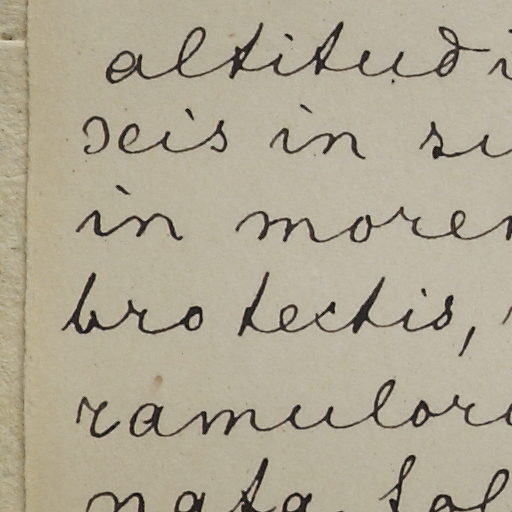 altitudi
xeis in su
in morem
bro tectis,
ramuloru
nata fol